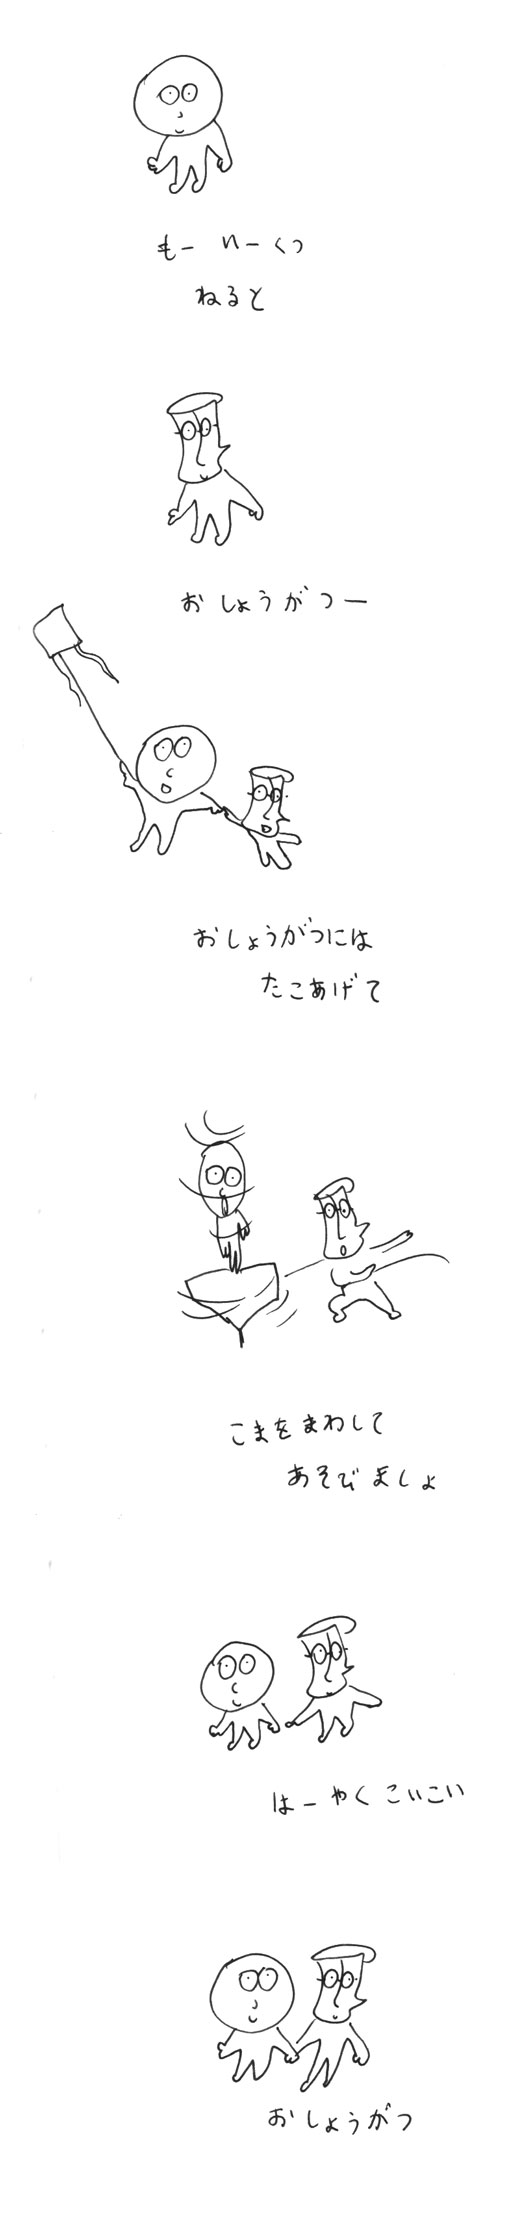 もー いーくつ
ねると
おしょうがつー
おしょうがつには
たこあげて
こまをまわして
あそびましょ
はーやく こいこい
おしょうがつ